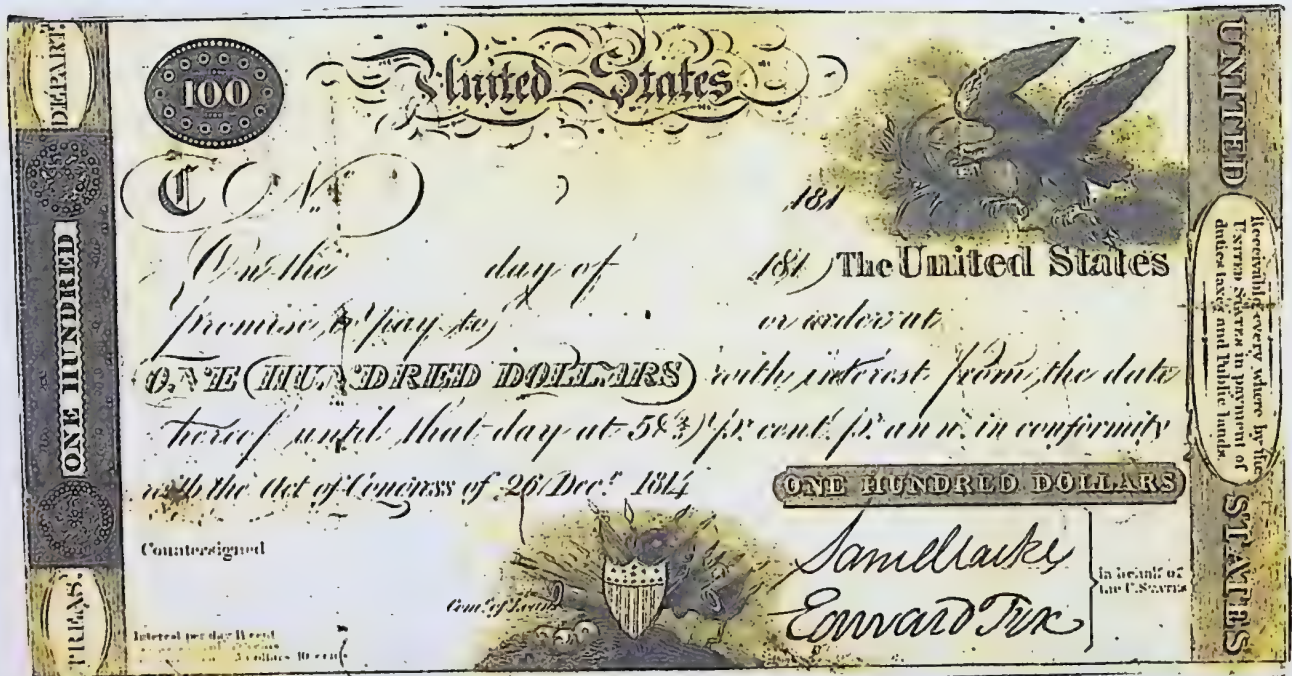 DEPART.
ONE HUNDRED
TREAS.
100
United States
C No.
181
On the day of 181 The United States
promise to pay to or order at
ONE HUNDRED DOLLARS with interest from the date
hereof until that day at 5⅖ pr. cent. pr. ann. in conformity
with the Act of Congress of 26 Decr. 1814
ONE HUNDRED DOLLARS
Countersigned
Comr. of Loans
Edward Fox
In behalf of
the U.States
Interest per day
UNITED
Receivable every where by the
UNITED STATES in payment of
duties taxes and Public lands.
STATES